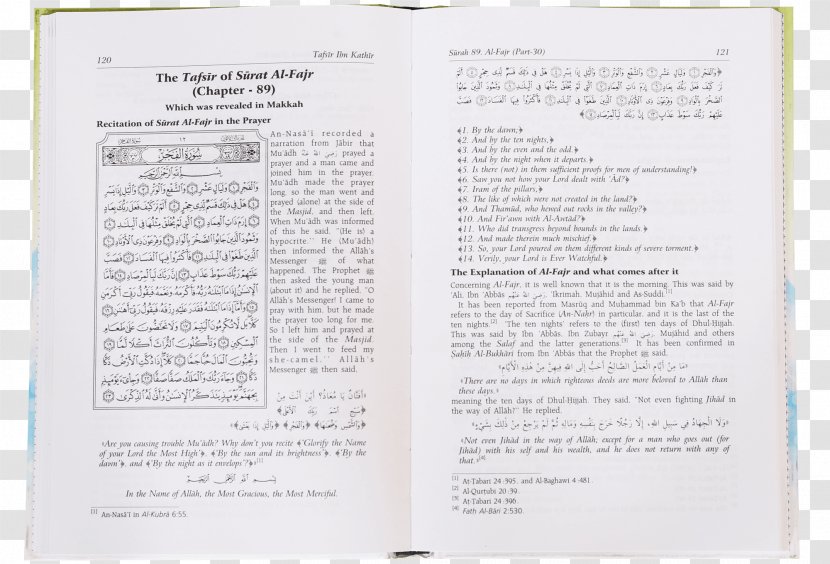 120
Tafsīr Ibn Kathīr
The Tafsīr of Sūrat Al-Fajr
(Chapter - 89)
Which was revealed in Makkah
Recitation of Sūrat Al-Fajr in the Prayer
An-Nasā'ī recorded a
narration from Jābir that
Mu'ādh رضي الله عنه prayed a
prayer and a man came and
joined him in the prayer.
Mu'ādh made the prayer
long, so the man went and
prayed (alone) at the side of
the Masjid, and then left.
When Mu'ādh was informed
of this he said, "(He is) a
hypocrite." He (Mu'ādh)
then informed the Allāh's
Messenger ﷺ of what
happened. The Prophet ﷺ
then asked the young man
(about it) and he replied, "O
Allāh's Messenger! I came to
pray with him, but he made
the prayer too long for me.
So I left him and prayed at
the side of the Masjid.
Then I went to feed my
she-camel." Allāh's
Messenger ﷺ then said,
«أَفَتَّانٌ يَا مُعَاذُ؟ أَيْنَ أَنْتَ مِنْ
﴿سَبِّحِ اسْمَ رَبِّكَ الْأَعْلَى﴾
﴿وَالشَّمْسِ وَضُحَاهَا﴾ ﴿وَالْفَجْرِ﴾ ﴿وَاللَّيْلِ إِذَا يَغْشَى﴾»
«Are you causing trouble Mu'ādh? Why don't you recite ﴾Glorify the Name
of your Lord the Most High﴿, ﴾By the sun and its brightness﴿, ﴾By the
dawn﴿, and ﴾By the night as it envelops?﴿»[1]
بِسْمِ اللَّهِ الرَّحْمَٰنِ الرَّحِيمِ
In the Name of Allāh, the Most Gracious, the Most Merciful.
[1] An-Nasā'ī in Al-Kubrā 6:55.
Sūrah 89. Al-Fajr (Part-30)
121
﴿وَالْفَجْرِ ۝ وَلَيَالٍ عَشْرٍ ۝ وَالشَّفْعِ وَالْوَتْرِ ۝ وَاللَّيْلِ إِذَا يَسْرِ ۝ هَلْ فِي ذَٰلِكَ قَسَمٌ لِّذِي حِجْرٍ ۝ أَلَمْ
تَرَ كَيْفَ فَعَلَ رَبُّكَ بِعَادٍ ۝ إِرَمَ ذَاتِ الْعِمَادِ ۝ الَّتِي لَمْ يُخْلَقْ مِثْلُهَا فِي الْبِلَادِ ۝ وَثَمُودَ الَّذِينَ جَابُوا
الصَّخْرَ بِالْوَادِ ۝ وَفِرْعَوْنَ ذِي الْأَوْتَادِ ۝ الَّذِينَ طَغَوْا فِي الْبِلَادِ ۝ فَأَكْثَرُوا فِيهَا الْفَسَادَ ۝ فَصَبَّ
عَلَيْهِمْ رَبُّكَ سَوْطَ عَذَابٍ ۝ إِنَّ رَبَّكَ لَبِالْمِرْصَادِ ۝﴾
﴾1. By the dawn;﴿
﴾2. And by the ten nights,﴿
﴾3. And by the even and the odd.﴿
﴾4. And by the night when it departs.﴿
﴾5. Is there (not) in them sufficient proofs for men of understanding!﴿
﴾6. Saw you not how your Lord dealt with 'Ād?﴿
﴾7. Iram of the pillars,﴿
﴾8. The like of which were not created in the land?﴿
﴾9. And Thamūd, who hewed out rocks in the valley?﴿
﴾10. And Fir'awn with Al-Awtād?﴿
﴾11. Who did transgress beyond bounds in the lands.﴿
﴾12. And made therein much mischief.﴿
﴾13. So, your Lord poured on them different kinds of severe torment.﴿
﴾14. Verily, your Lord is Ever Watchful.﴿
The Explanation of Al-Fajr and what comes after it
Concerning Al-Fajr, it is well known that it is the morning. This was said by
'Ali, Ibn 'Abbās رضي الله عنهم, 'Ikrimah, Mujāhid and As-Suddi.[1]
It has been reported from Masrūq and Muhammad bin Ka'b that Al-Fajr
refers to the day of Sacrifice (An-Nahr) in particular, and it is the last of the
ten nights.[2] 'The ten nights' refers to the (first) ten days of Dhul-Ḥijjah.
This was said by Ibn 'Abbās, Ibn Zubayr رضي الله عنهم, Mujāhid and others
among the Salaf and the latter generations.[3] It is confirmed in
Sahīh Al-Bukhāri from Ibn 'Abbās that the Prophet ﷺ said,
«مَا مِنْ أَيَّامٍ الْعَمَلُ الصَّالِحُ أَحَبُّ إِلَى اللهِ فِيهِنَّ مِنْ هَذِهِ الْأَيَّامِ»
«There are no days in which righteous deeds are more beloved to Allāh than
these days.»
meaning the ten days of Dhul-Ḥijjah. They said, "Not even fighting Jihād in
the way of Allāh?" He replied,
«وَلَا الْجِهَادُ فِي سَبِيلِ اللهِ، إِلَّا رَجُلًا خَرَجَ بِنَفْسِهِ وَمَالِهِ ثُمَّ لَمْ يَرْجِعْ مِنْ ذَلِكَ بِشَيْءٍ»
«Not even Jihād in the way of Allāh; except for a man who goes out (for
Jihād) with his self and his wealth, and he does not return with any of
that.»[4]
[1] At-Tabari 24:395, and Al-Baghawi 4:481.
[2] Al-Qurṭubi 20:39.
[3] At-Tabari 24:396.
[4] Fath Al-Bāri 2:530.